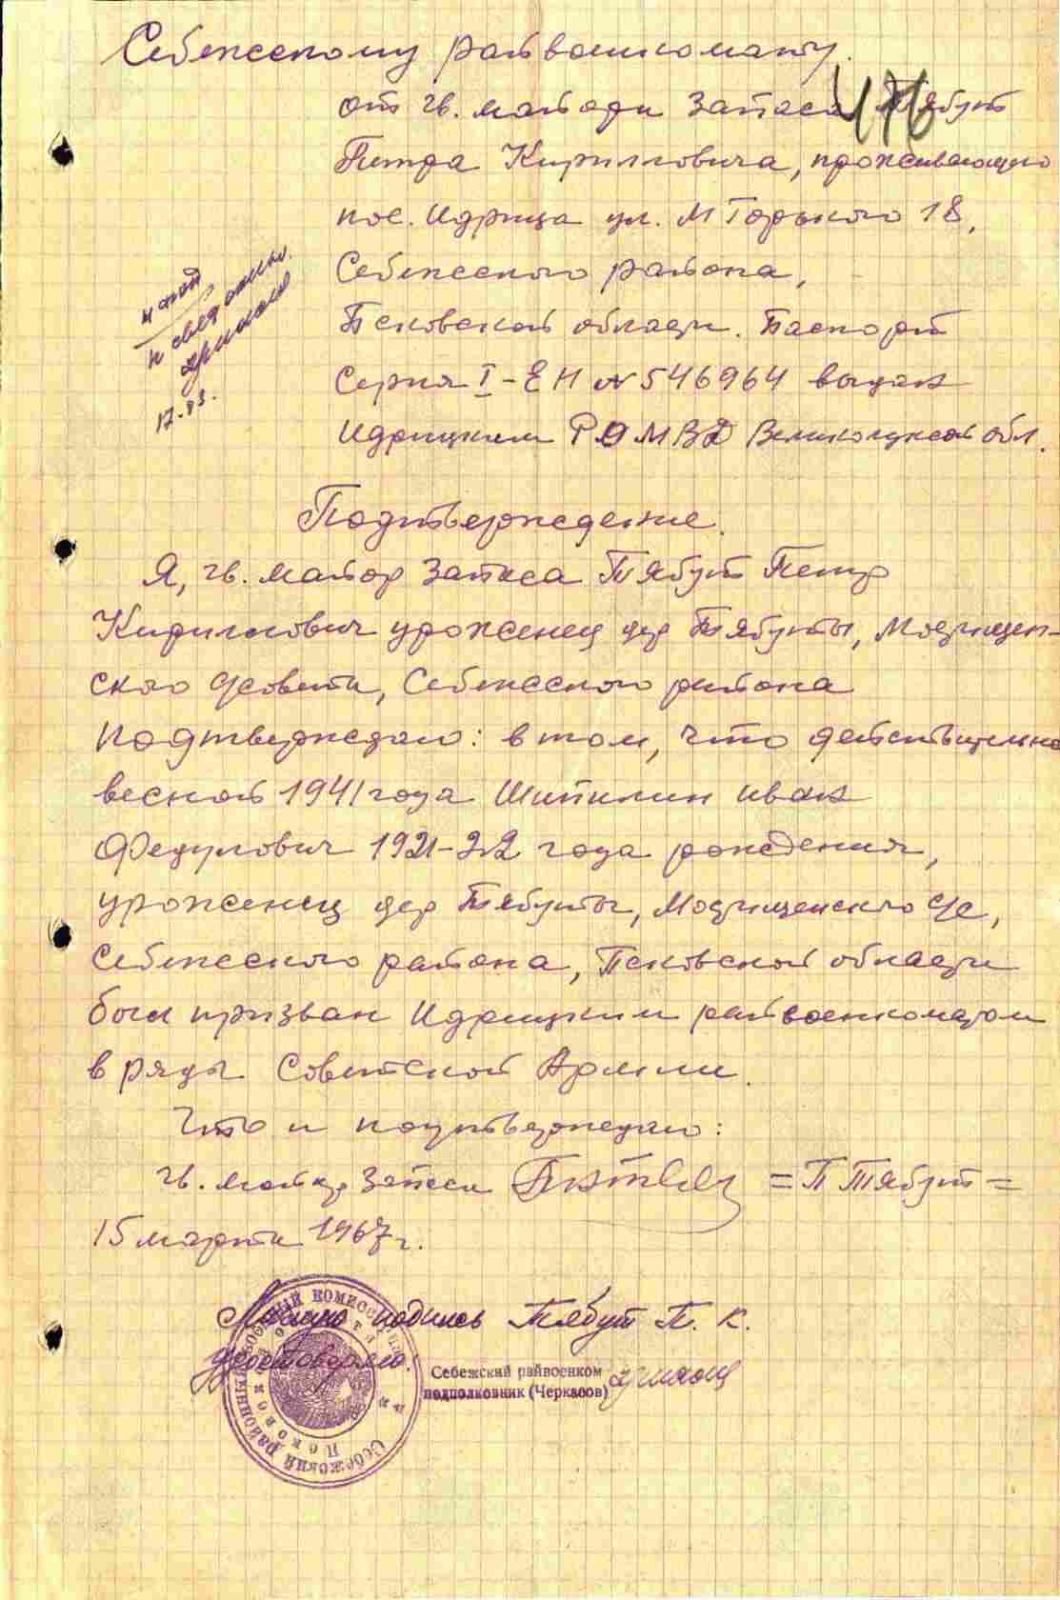 Себежскому райвоенкомату.
от гв. майора запаса Тябут
476
Петра Кирилловича, проживающего
пос. Идрица ул. М Горького 18,
Себежского района,
Псковской области. Паспорт
Серия I-ЕН № 546964 выдан
Идрицким РОМВД Великолукской обл.
17.03.
Подтверждение.
Я, гв. майор запаса Тябут Петр
Кириллович уроженец дер Тябуты, Мозчищен-
ского с/совета, Себежского района
подтверждаю: в том, что действительно
весной 1941 года Шипилин Иван
Федулович 1921-22 года рождения,
уроженец дер Тябуты,
Себежского района, Псковской области
был призван Идрицким райвоенкоматом
в ряды Советской Армии.
Что и подтверждаю:
гв. майор запаса = П Тябут =
15 марта 1967 г.
подпись Тябут П. К.
удостоверяю.
Себежский райвоенком
подполковник (Черкасов)
Себежский районный военный комиссариат
Псковской